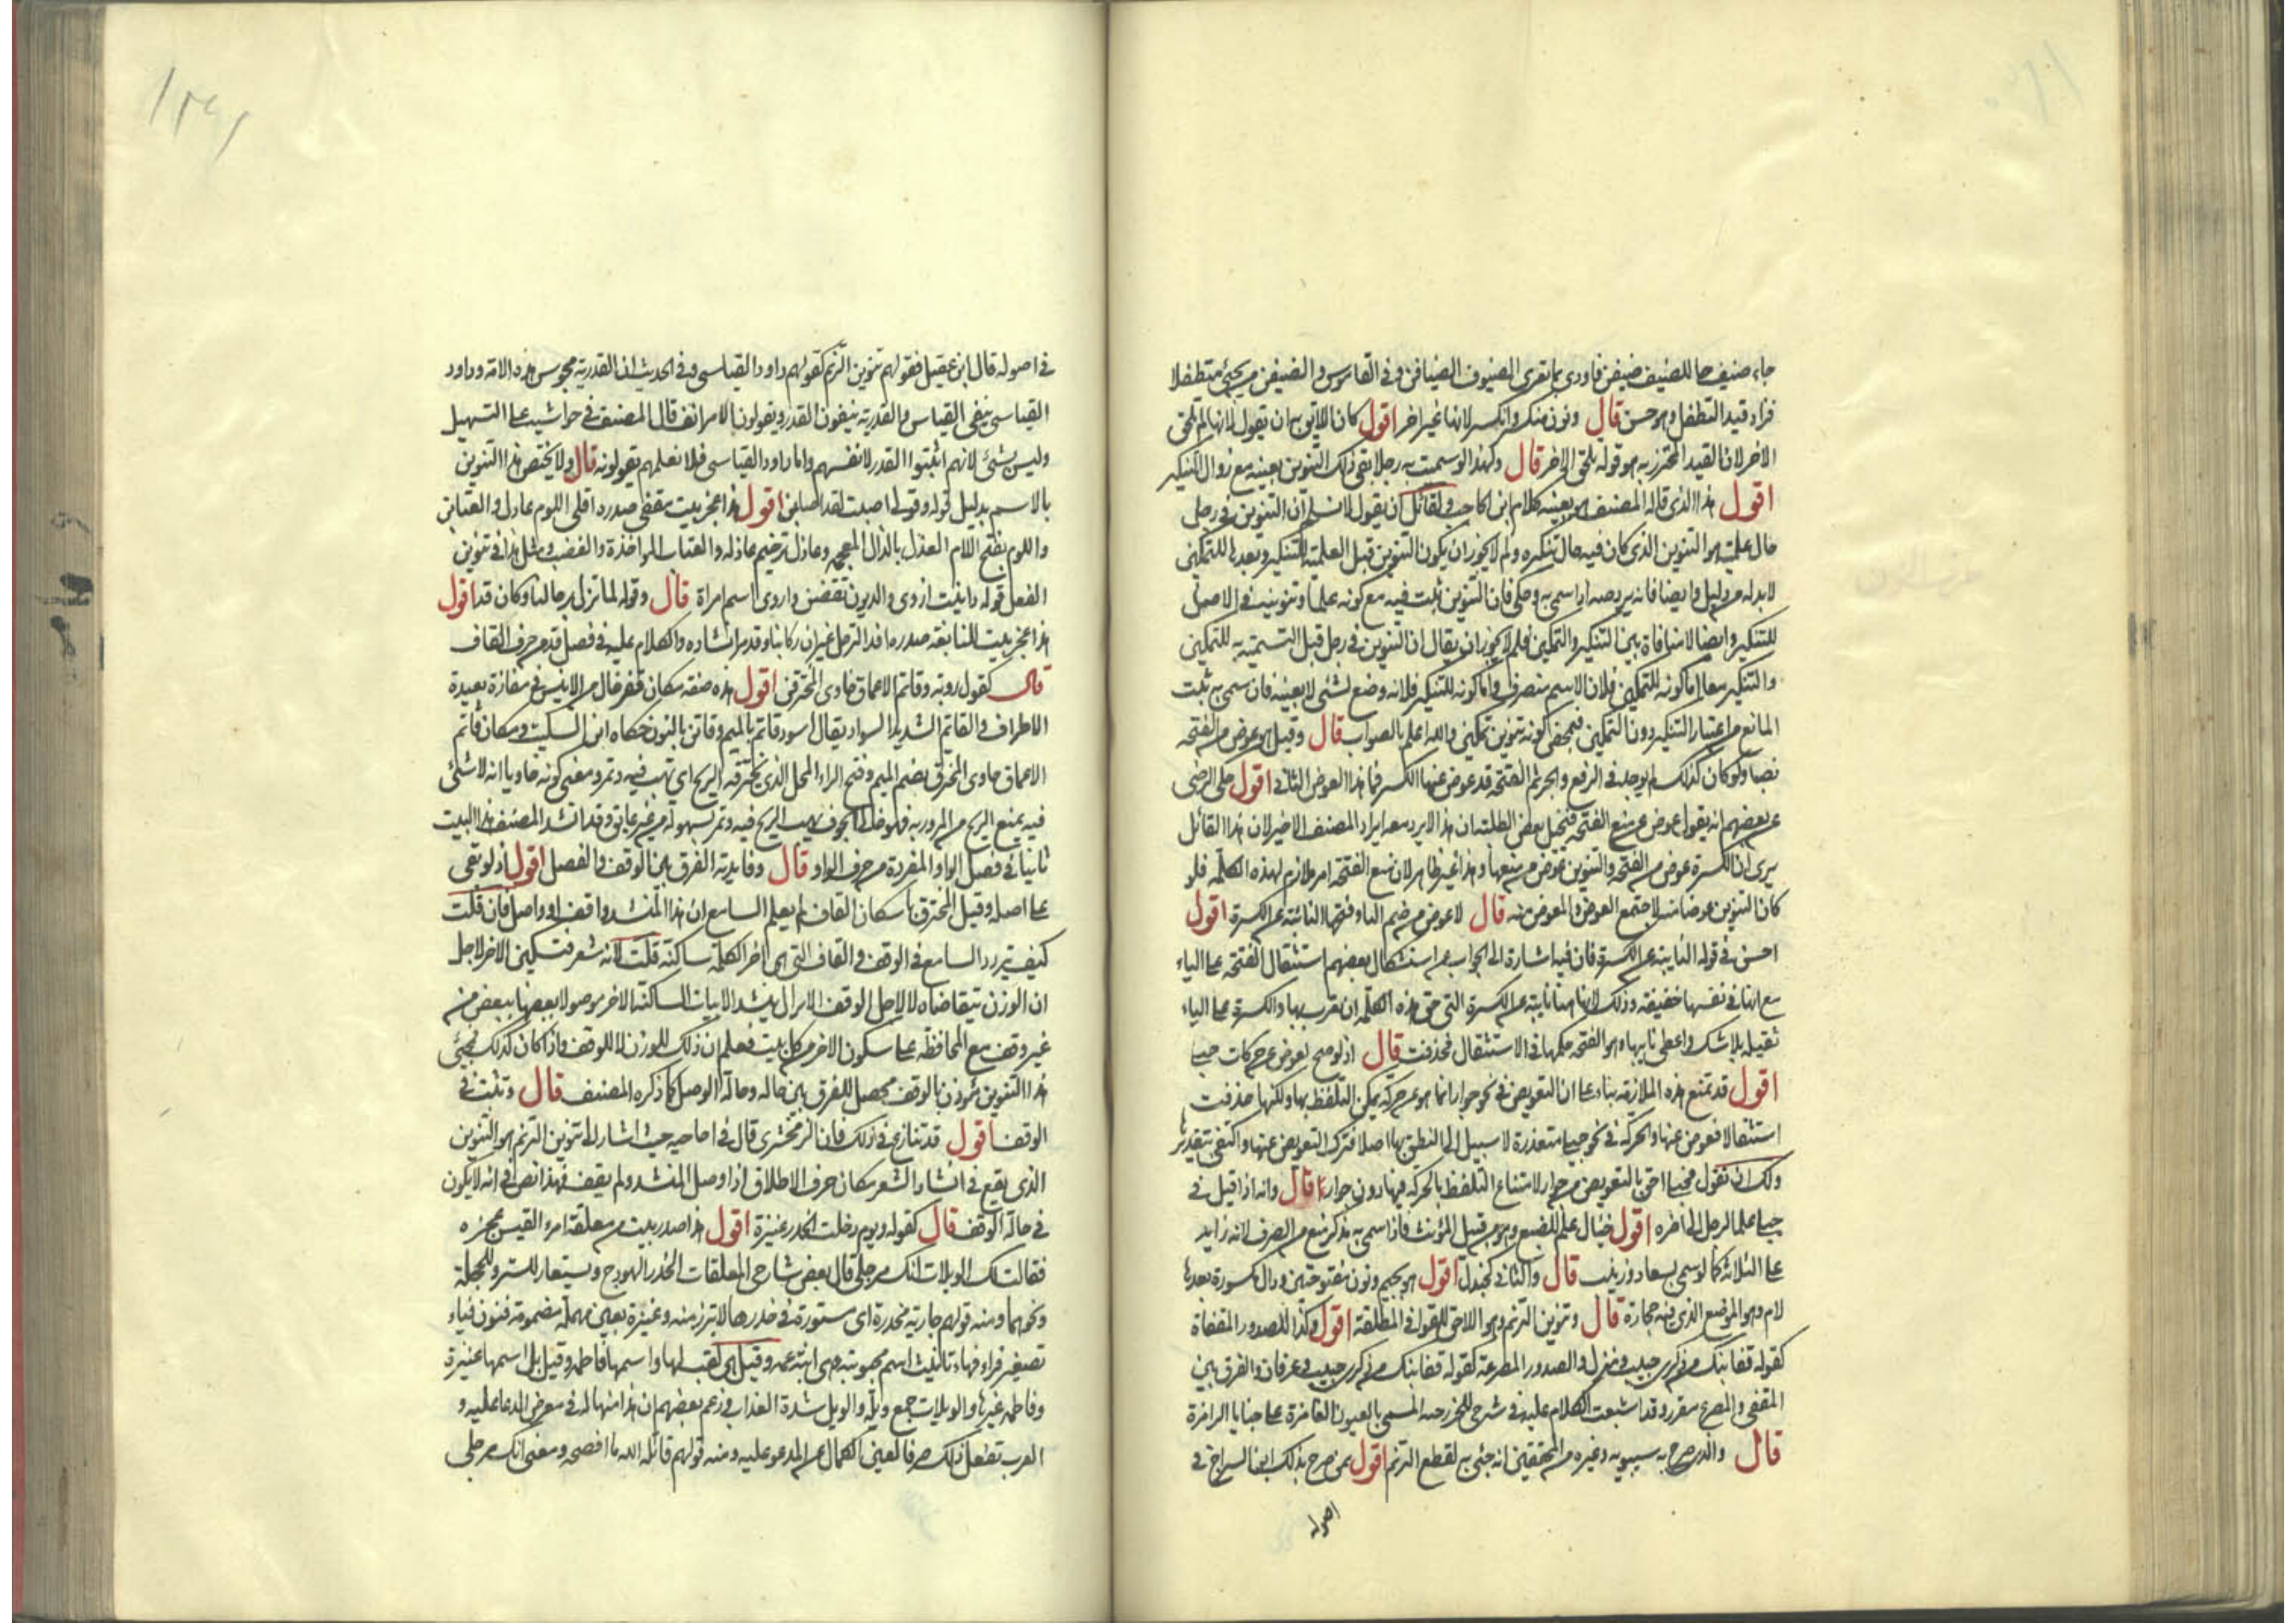 جاء ضيف جا للضيف ضيفن فاودى بما تقرى الضيوف الضيافن وفى القاموس والضيفن من يجئ متطفلا
فزاد قيد التطفل وهو حسن قال ونون منكر وانكسر لانها غير اخر اقول كان اللايق به ان يقول لانها لم تلحق
الاخر لان القيد المحترز به هو قوله يلحق الاخر قال ولهذا لو سميت به رجلا بقى ذلك التنوين بعينه مع زوال التنكير
اقول هذا الذى قاله المصنف هو بعينه كلام ابن الحاجب ولقائل ان يقول لا نسلم ان التنوين فى رجل
حال علميته هو التنوين الذى كان فيه حال تنكيره ولم لا يجوز ان يكون التنوين قبل العلمية للتنكير وبعدها للتمكين
لا بد له من دليل وايضا فانه يرد صه اذا سمى به وحكى فان التنوين ثبت فيه مع كونه علما وتنوينه فى الاصل
للتنكير وايضا لا منافاة بين التنكير والتمكين فلم لا يجوز ان يقال ان التنوين فى رجل قبل التسمية به للتمكين
والتنكير معا اما كونه للتمكين فلان الاسم منصرف واما كونه للتنكير فلانه وضع لشئ لا بعينه فان سمى به ثبت
المانع من اعتبار التنكير دون التمكين فتمحض كونه تنوين تمكين والله اعلم بالصواب قال وقيل هو عوض من الفتحة
نصبا ولو كان كذلك لم يوجد فى الرفع والجر ثم الفتحة قد عوض عنها الكسر فما هذا العوض الثانى اقول حكى الرضى
عن بعضهم انه يقول عوض عن منع الفتحة فتخيل بعض الطلبة ان هذا لا يرد معه ايراد المصنف الاخير لان هذا القائل
يرى ان الكسرة عوض من الفتحة والتنوين عوض من منعها وهذا غير ظاهر لان منع الفتحة امر ملازم لهذه الكلمة فلو
كان التنوين عوضا منه لاجتمع العوض والمعوض منه قال لا عوض من ضم الياء وفتحها النائبة عن الكسرة اقول
احسن فى قوله النايبة عن الكسرة فان فيه اشارة الى الجواب عن استشكال بعضهم استثقال الفتحة على الياء
مع انها فى نفسها خفيفة وذلك لانها هنا نايبة عن الكسرة التى حق هذه الكلمة ان تعرب بها والكسرة على الياء
ثقيلة بلا شك واعطى نايبها وهو الفتحة حكمها فى الاستثقال فحذفت قال اذ لو صح لعوض عن حركات حبلى
اقول قد تمنع هذه الملازمة بناء على ان التعويض فى نحو جوار انما هو عن حركة يمكن التلفظ بها ولكنها حذفت
استثقالا فعوض عنها والحركة فى نحو حبلى متعذرة لا سبيل الى النطق بها اصلا فترك التعويض عنها واكتفى بتقديرها
ولك ان تقول فحبلى احق بالتعويض من جوار لامتناع التلفظ بالحركة فيها دون جوار قال وانه اذا قيل فى
جيا علما لرجل الى اخره اقول جيال علم للضبع وهو من قبيل المؤنث فاذا سمى به مذكر منع من الصرف لانه زايد
على الثلاثة كما لو سمى بسعاد وزينب قال والثانى كجندل اقول هو بجيم ونون مفتوحتين ودال مكسورة بعدها
لام وهو الموضع الذى فيه حجارة قال وتنوين الترنم وهو اللاحق للقوافى المطلقة اقول وكذا للصدور المقفاة
كقوله قفا نبك من ذكرى حبيب ومنزل والصدور المصرعة كقوله قفا نبك من ذكرى حبيب وعرفان والفرق بين
المقفى والمصرع مقرر وقد اشبعت الكلام عليه فى شرح للخزرجية المسمى بالعيون الغامزة على خبايا الرامزة
قال والذى صرح به سيبويه وغيره من المحققين انه جئ به لقطع الترنم اقول ممن صرح بذلك ابن السراج فى
اصوله
فى اصوله قال ابن عقيل فقولهم تنوين الترنم كقولهم داود القياسى وفى الحديث ان القدرية مجوس هذه الامة وداود
القياسى ينفى القياس والقدرية ينفون القدر ويقولون الامر انف قال المصنف فى حواشيه على التسهيل
وليس بشئ لانهم اثبتوا القدر لانفسهم واما داود القياسى فلا نعلمهم يقولونه قال ولا يختص هذا التنوين
بالاسم بدليل قوله وقولى ان اصبت لقد اصابن اقول هذا عجز بيت مقفى صدره اقلى اللوم عاذل والعتابن
واللوم بفتح اللام العذل بالذال المعجمه وعاذل ترخيم عاذله والعتاب المواخذة والغضب ومثل هذا فى تنوين
الفعل قوله داينت اروى والديون تقضن واروى اسم امراة قال وقوله لما تزل برحالنا وكان قد اقول
هذا عجز بيت للنابغة صدره افد الترحل غير ان ركابنا وقد مر انشاده والكلام عليه فى فصل قد من حرف القاف
قال كقول روبة وقاتم الاعماق خاوى المخترقن اقول هذه صفة مكان قفر خال من الانيس فى مفازة بعيدة
الاطراف والقاتم الشديد السواد يقال اسود قاتم بالميم وقاتن بالنون حكاه ابن السكيت ومكان قاتم
الاعماق خاوى المخترق بضم الميم وفتح الراء المحل الذى تخترقه الريح اى تهب فيه وتمر ومعنى كونه خاويا انه لا شئ
فيه يمنع الريح من المرور به فهو خالى الجوف تهب الريح فيه وتمر بسهوله من غير عايق وقد انشد المصنف هذا البيت
ثانيا فى فصل الواو المفردة من حرف الواو قال وفايدته الفرق بين الوقف والفصل اقول اذ لو بقى
على اصله وقيل المخترق باسكان القاف لم يعلم السامع ان هذا المنشد واقف او واصل فان قلت
كيف يتردد السامع فى الوقف والقاف التى هى اخر الكلمة ساكنة قلت لانه شعر فتسكين الاخر لاجل
ان الوزن يتقاضاه لا لاجل الوقف الا ترى ان ينشد الابيات الساكنة الاخر موصولا بعضها ببعض من
غير وقف مع المحافظة على سكون الاخر من كل بيت فعلم ان ذلك للوزن لا للوقف واذا كان كذلك فمجئ
هذا التنوين مؤذن بالوقف محصل للفرق بين حاله وحالة الوصل كما ذكره المصنف قال وتثبت فى
الوقف اقول قد تنازع فى ذلك فان الزمخشرى قال فى احاجيه حيث اشار الى تنوين الترنم هو التنوين
الذى يقع فى انشاد الشعر مكان حرف الاطلاق اذا وصل المنشد ولم يقف فهذا نص فى انه لا يكون
فى حالة الوقف قال كقوله ويوم دخلت الخدر عنيزة اقول هذا صدر بيت من معلقة امرء القيس عجزه
فقالت لك الويلات انك مرجلى قال بعض شارحى المعلقات الخدر الهودج ويستعار للستر وللحجلة
ونحوهما ومنه قولهم جارية مخدرة اى مستورة فى خدرها لا تبرز منه وعنيزة بعين مهملة مضمومة فنون فياء
تصغير فزاء فهاء تانيث اسم محبوبته وهى ابنة عمه وقيل هى لقب لها واسمها فاطمه وقيل بل اسمها عنيزة
وفاطمه غيرها والويلات جمع ويلة والويل شدة العذاب وزعم بعضهم ان هذا منها له فى معرض الدعا عليه و
العرب تفعل ذلك صرفا لعين الكمال عن المدعو عليه ومنه قولهم قاتله الله ما افصحه ومعنى انك مرجلى